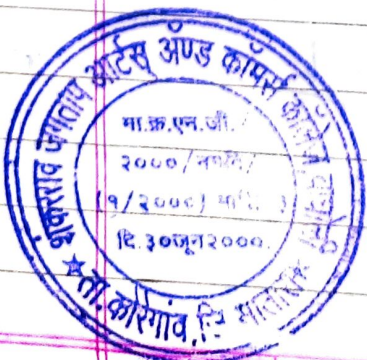 शंकरराव जगताप आर्टस् अ‍ॅण्ड कॉमर्स कॉलेज, वाघोली
मा.क्र.एन.जी./
२०००/नमवि/
(१/२०००) माशि ३
दि.३०जून२०००.
★ ता. कोरेगांव, जि. सातारा